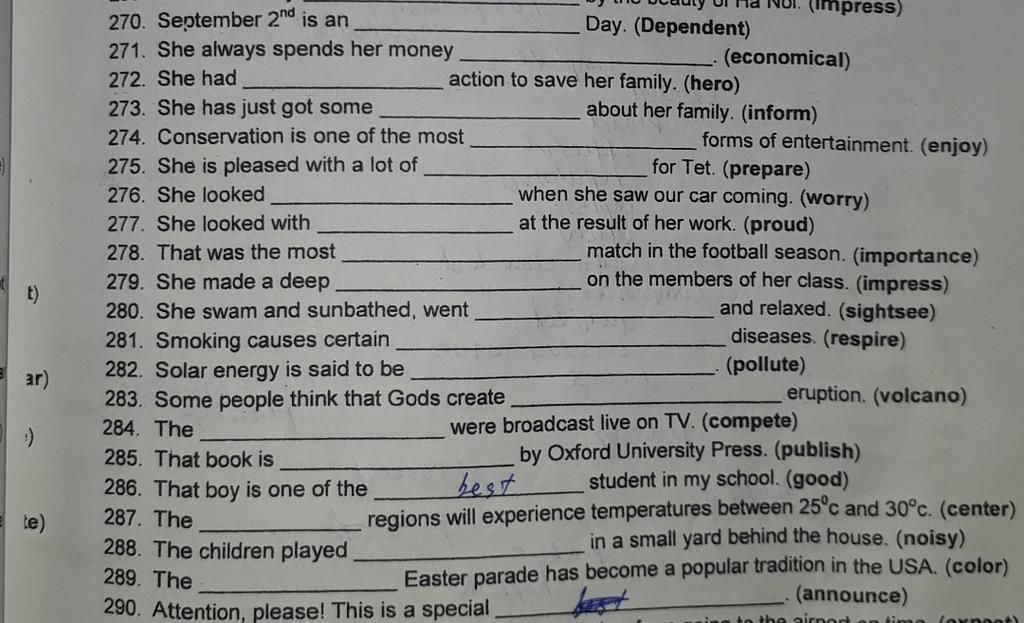 by the beauty of Ha Noi. (impress)
270. September 2nd is an ____ Day. (Dependent)
271. She always spends her money ____. (economical)
272. She had ____ action to save her family. (hero)
273. She has just got some ____ about her family. (inform)
274. Conservation is one of the most ____ forms of entertainment. (enjoy)
275. She is pleased with a lot of ____ for Tet. (prepare)
276. She looked ____ when she saw our car coming. (worry)
277. She looked with ____ at the result of her work. (proud)
278. That was the most ____ match in the football season. (importance)
t) 279. She made a deep ____ on the members of her class. (impress)
280. She swam and sunbathed, went ____ and relaxed. (sightsee)
281. Smoking causes certain ____ diseases. (respire)
ar) 282. Solar energy is said to be ____. (pollute)
283. Some people think that Gods create ____ eruption. (volcano)
284. The ____ were broadcast live on TV. (compete)
285. That book is ____ by Oxford University Press. (publish)
286. That boy is one of the best student in my school. (good)
te) 287. The ____ regions will experience temperatures between 25⁰c and 30⁰c. (center)
288. The children played ____ in a small yard behind the house. (noisy)
289. The ____ Easter parade has become a popular tradition in the USA. (color)
290. Attention, please! This is a special ____. (announce)
to the airport on time. (expect)